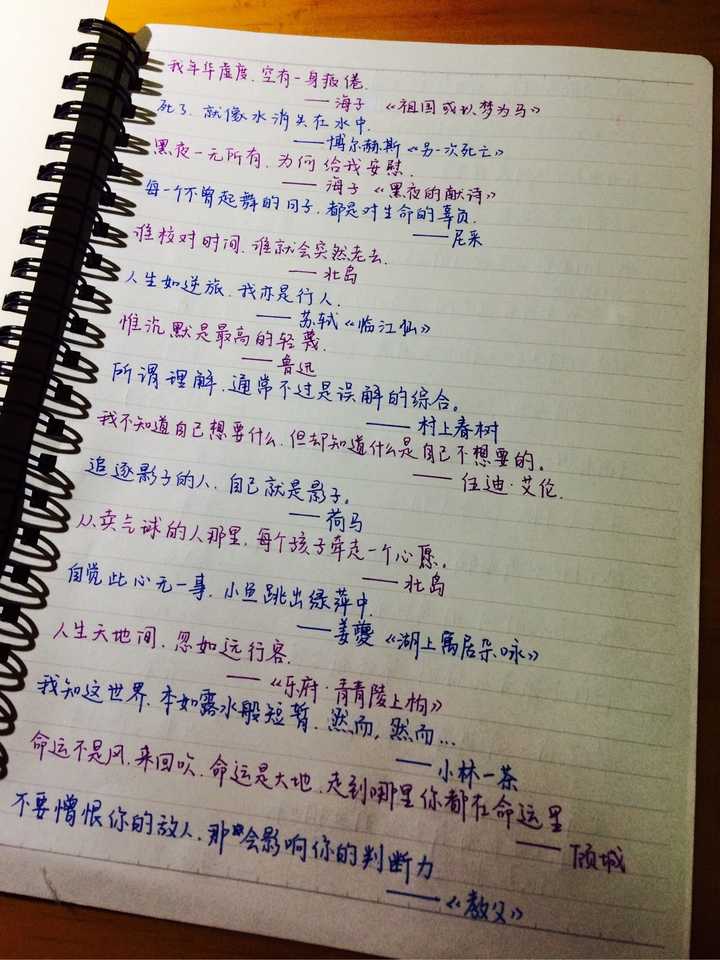 我年华虚度，空有一身疲倦.
——海子 《祖国或以梦为马》
死了，就像水消失在水中.
——博尔赫斯《另一次死亡》
黑夜一无所有，为何给我安慰.
——海子 《黑夜的献诗》
每一个不曾起舞的日子，都是对生命的辜负.
——尼采
谁校对时间，谁就会突然老去.
——北岛
人生如逆旅，我亦是行人.
——苏轼《临江仙》
惟沉默是最高的轻蔑.
——鲁迅
所谓理解，通常不过是误解的综合。
——村上春树
我不知道自己想要什么，但却知道什么是自己不想要的。
——伍迪·艾伦.
追逐影子的人，自己就是影子。
——荷马
从卖气球的人那里，每个孩子牵走一个心愿。
——北岛
自觉此心无一事，小鱼跳出绿萍中.
——姜夔《湖上寓居杂咏》
人生天地间，忽如远行客.
——《乐府·青青陵上柏》
我知这世界，本如露水般短暂，然而，然而...
——小林一茶
命运不是风，来回吹，命运是大地，走到哪里你都在命运里
——顾城
不要憎恨你的敌人，那会影响你的判断力
——《教父》